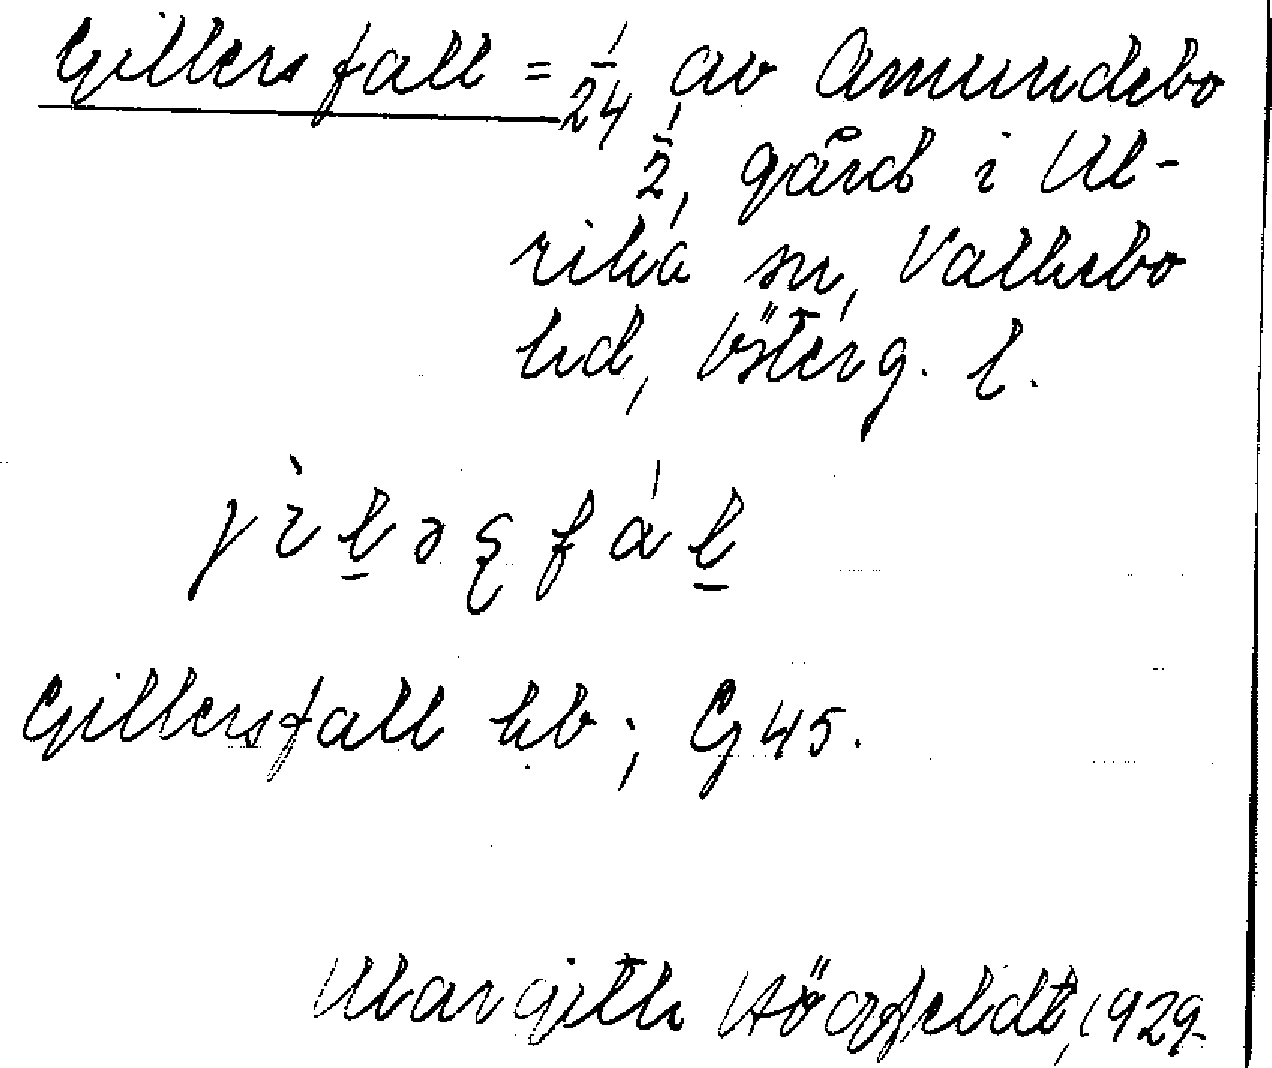 Gillersfall = 1/24 av Amundebo
1/2, gård i Ul-
rika sn, Valkebo
hd, Österg. l.
jìl̲əʂfál̲
Gillersfall kb; G45.
Margith 1929